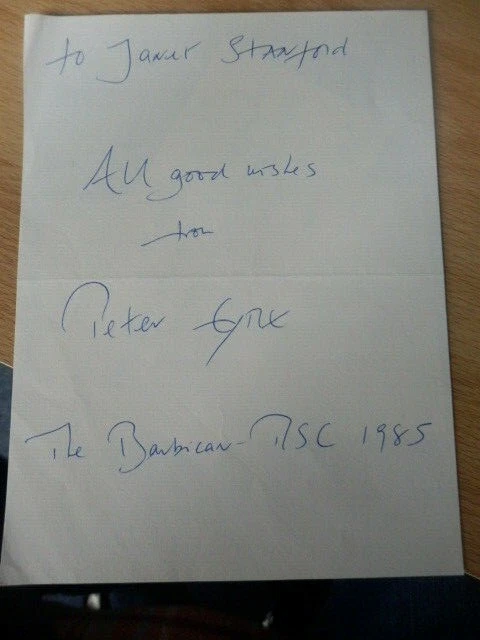 to Janet Stanford
All good wishes
from
Peter Eyre
The Barbican - RSC 1985